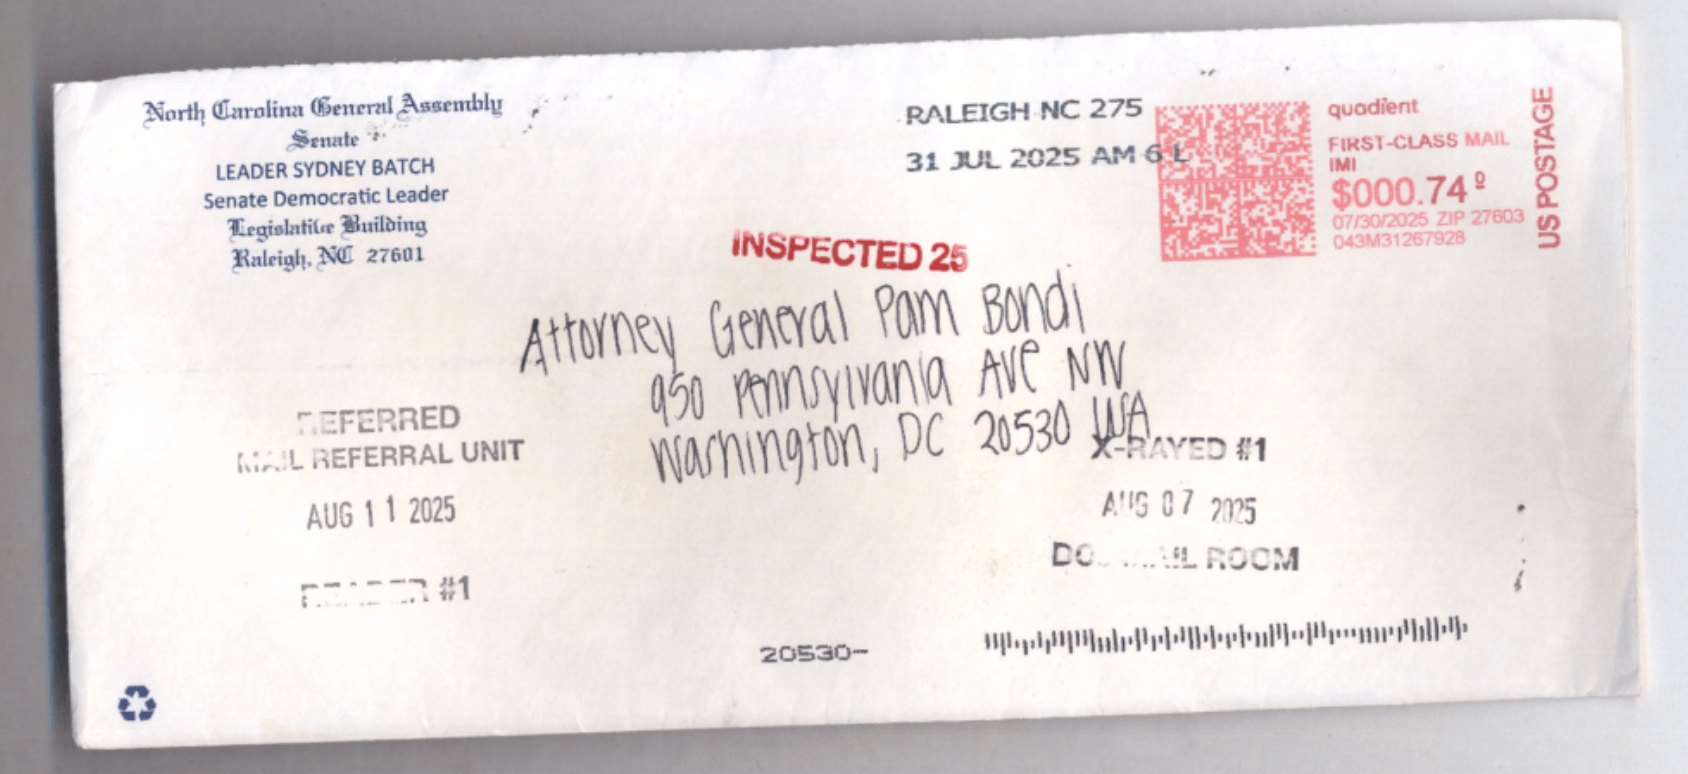 North Carolina General Assembly
Senate
LEADER SYDNEY BATCH
Senate Democratic Leader
Legislative Building
Raleigh, NC 27601
RALEIGH NC 275
31 JUL 2025 AM 6 L
quadient
FIRST-CLASS MAIL
IMI
$000.74⁰
07/30/2025 ZIP 27603
043M31267928
US POSTAGE
INSPECTED 25
Attorney General Pam Bondi
950 Pennsylvania Ave NW
Washington, DC 20530 USA
REFERRED
MAIL REFERRAL UNIT
AUG 11 2025
READER #1
X-RAYED #1
AUG 07 2025
MAIL ROOM
20530-